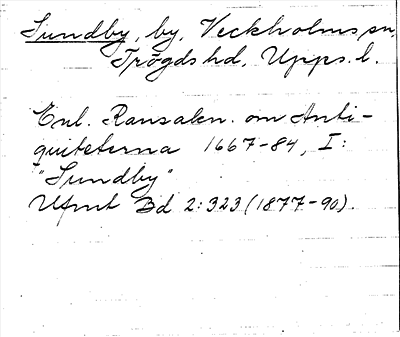 Sundby, by, Veckholms sn,
Trögds hd, Upps. l.
Enl. Ransakn. om Anti-
quiteterna 1667-84, I:
"Sundby"
Ufmt Bd 2:323 (1877-90).